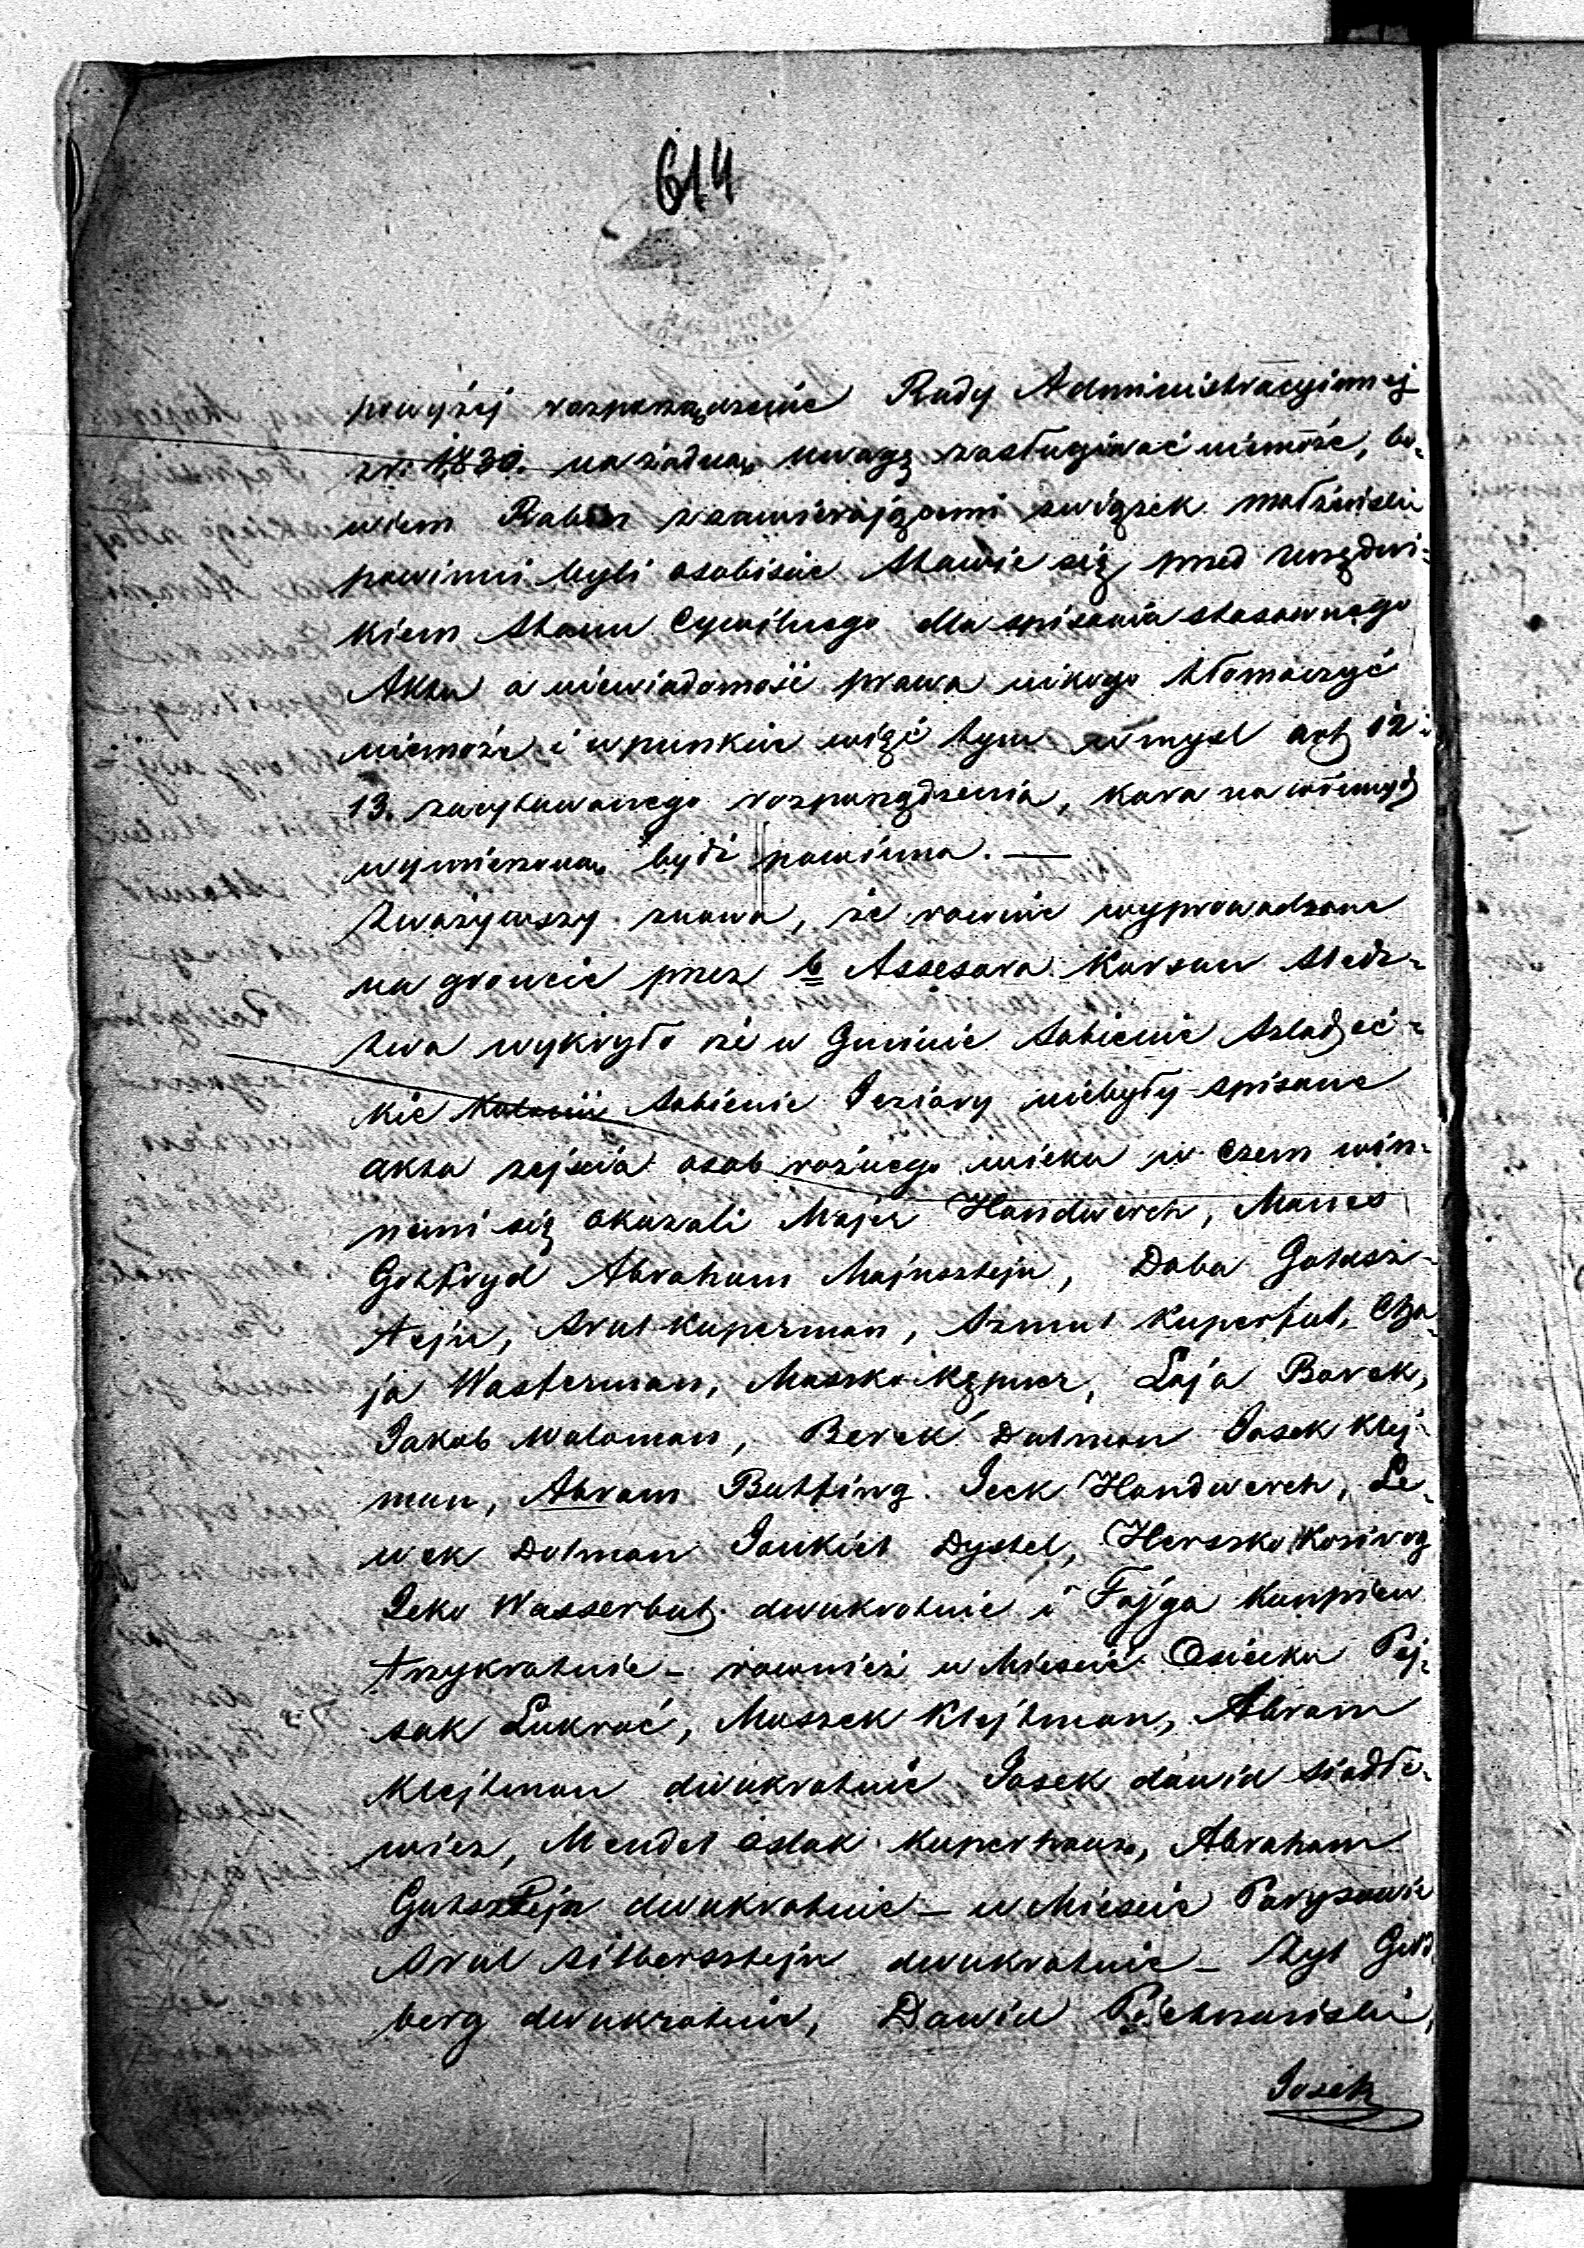 614
powyżej rozporządzenie Rady Administracyinnej
z r. 1830. na żadną uwagę zasługiwać niemoże, bo-
wiem Rabin z zawierającemi związek małżeński
powinni byli osobiście stawić się przed Urzędni-
kiem Stanu Cywilnego dla spisania stosownego
Aktu a niewiadomość prawa nikogo tłomaczyć
niemoże i w punkcie więc tym w myśl art 12 i
13. zacytowanego rozporządzenia, kara na winnych
wymierzoną bydź powinna. —
Zważywszy znowu, że równie wyprowadzone
na gruncie przez b Assesora Karsau śledz-
twa wykryło że w Gminie Sobienie Szlachec-
kie Kolonii Sobienie Jeziory niebyły spisane
akta zejścia osób różnego wieku w czem win-
nemi się okazali Majer Handwerch, Manes
Gotfryd Abraham Majnsztejn, Doba Goldsz-
tejn, Srul Kuperman, Szmul Kuperfut, Cha-
ja Wasferman, Moszko Kępner, Łaja Borek,
Jakob Waloman, Berek Dutman Josek Klej-
man, Abram Butfing. Icek Handwerch, Le-
wek Dutman Jankiel Dystel, Herszko Kosirog
Icko Wasserbut. dwukrotnie i Fajga Kunpien
trzykrotnie – również w Mieście Osiecku Pej-
sak Cukrać, Moszek Klejtman, Abram
Klejtman dwukrotnie Josek dawid siadłe-
wicz, Mendel Oslak Kuperhauz, Abraham
Gutsztejn dwukrotnie – w Mieście Parysowie
Srul Silbersztejn dwukrotnie – Zyl Gold-
berg dwukrotnie, Dawid
Josek